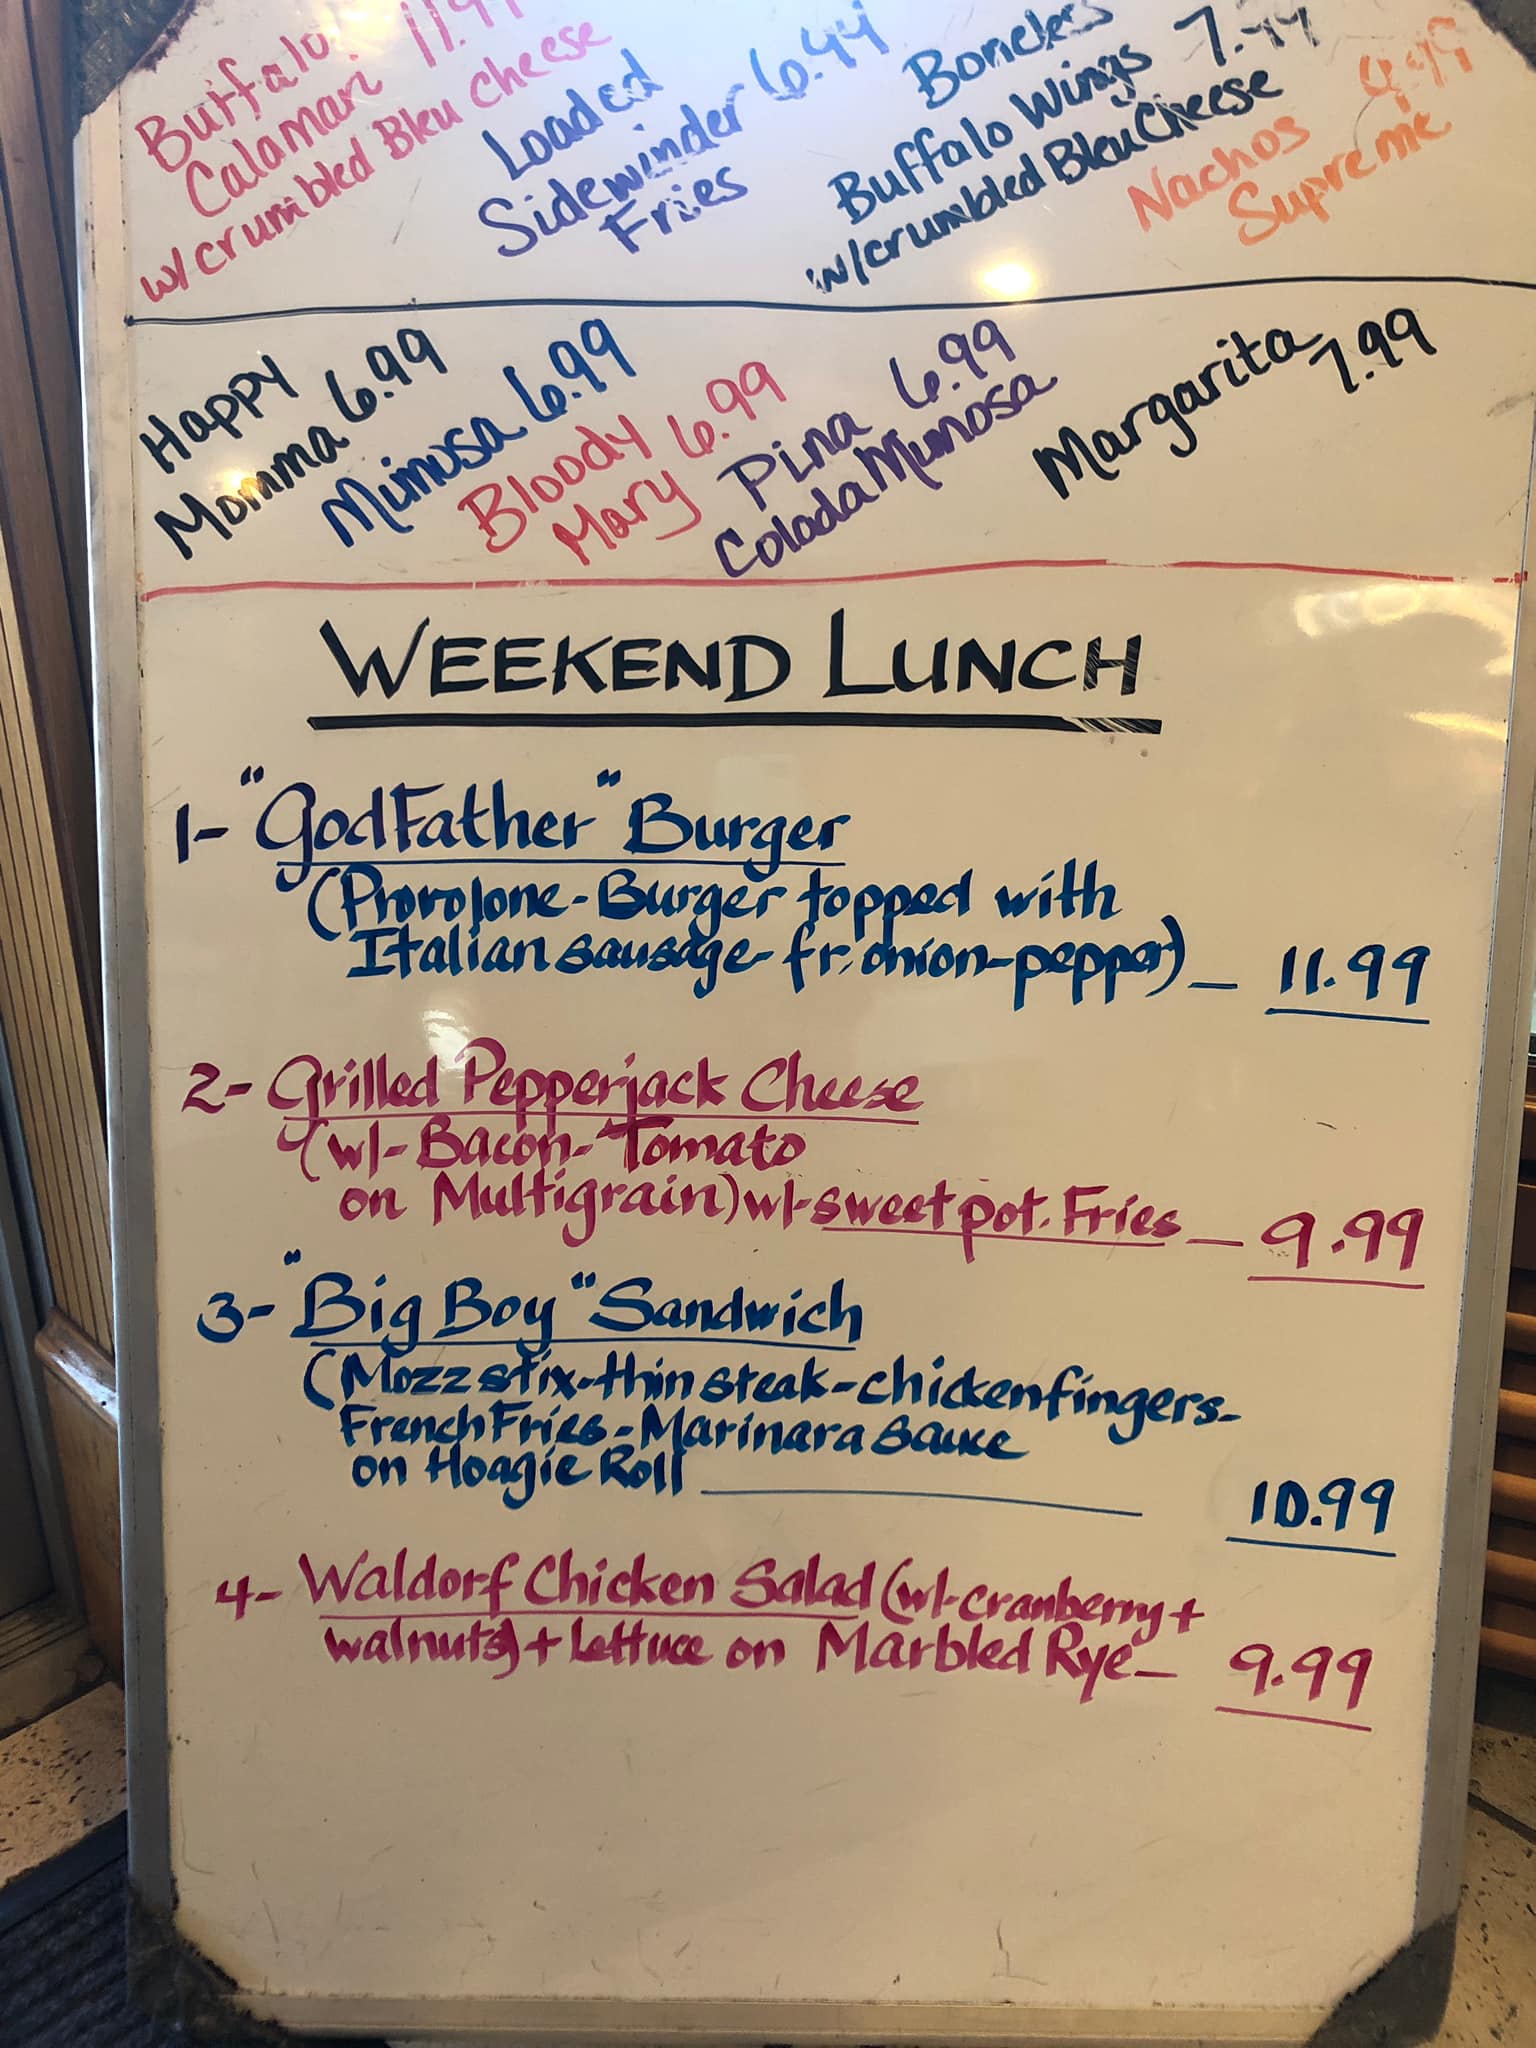 Buffalo
Calamari 11.99
w/crumbled Bleu Cheese
Loaded
Sidewinder 6.99
Fries
Boneless
Buffalo Wings 7.99
w/crumbled Bleu Cheese
Nachos
Supreme
Happy
Momma 6.99
Mimosa 6.99
Bloody
Mary 6.99
Pina 6.99
Colada Mimosa
Margarita
7.99
WEEKEND LUNCH
1- "GodFather" Burger
(Provolone-Burger topped with
Italian sausage-fr. onion-pepper) _ 11.99
2- Grilled Pepperjack Cheese
(w/-Bacon-Tomato
on Multigrain) w/-sweet pot. Fries _ 9.99
3- "Big Boy" Sandwich
(Mozz stix-thin steak-chicken fingers-
French Fries-Marinara sauce
on Hoagie Roll ____ 10.99
4- Waldorf Chicken Salad (w/-cranberry +
walnuts) + lettuce on Marbled Rye _ 9.99